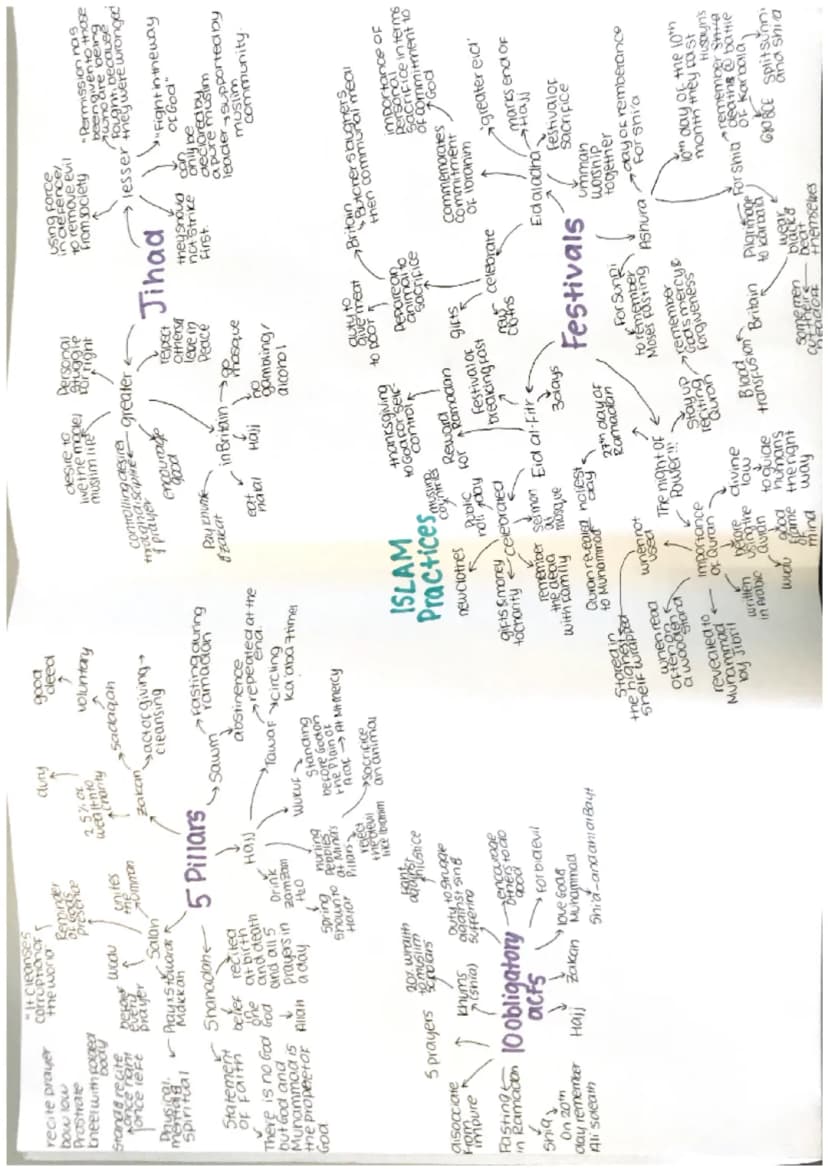 ISLAM
Practices
5 Pillars
Shahadah
belief
one
God
Allah
recited
at birth
and death
and all 5
prayers in
a day
Statement
of Faith
There is no God
but God and
Muhammad is
the prophet of
God
Salah
unites
the
ummah
Pray x5 towards
Makkah
Physical
mental &
spiritual
wudu
before
every
prayer
Reminder
of
presence
"It cleanses
corruption of
the world
recite prayer
bow low
Prostrate
kneel with
body
Stand & recite
once right
once left
Zakah
2.5% of
wealth to
charity
duty
act of giving
cleansing
Sadaqah
voluntary
good
deed
Sawm
Fasting during
ramadan
abstinence
Hajj
Tawaf
circling
Ka'aba 7 times
repeated at the
end
Wukuf
Standing
before God on
the Plain of
Araf
At Mt mercy
hurling
pebbles
at Mina's
Pillars
reject
the devil
like Ibrahim
sacrifice
an animal
Drink
zamzam
H₂O
spring
shown to
Jihad
lesser
using force
in defence,
to remove evil
from society
"Permission has
been given to those
who are being
fought because
they were wronged
"Fight in the way
of God"
can
only be
declared by
a pure muslim
leader + supported by
muslim
community.
they should
not strike
first.
greater
Personal
struggle
for right
desire to
live the model
muslim life
controlling desires
through discipline
of prayer
encourage
good
respect
others/
leave in
Peace
in Britain
go
mosque
no
gambling/
alcohol
Hajj
eat
halal
Pay
zakat
Festivals
Eid al adha
'greater eid'
marks end of
Hajj
Festival of
sacrifice
ummah
worship
together
commemorates
commitment
of Ibrahim
importance of
personal
sacrifice in terms
of commitment to
God
celebrate
new
cloths
gifts
Prepare an
animal to
sacrifice
duty to
give meat
to poor
Britain
Butchers buy
then communal meal
Ashura
day of remberance
for shi'a
10th day of the 10th
month they fast
For Shia
remember
Husayn's
death @ battle
of Karbala
680BCE
split sunni
and shia
Pilgrimage
to Karbala
wear
black &
beat
themselves
some men
cut their
Britain
Blood
transfusion
For Sunni
to remember
Moses fasting
Eid al-Fitr
3 days
Festival of
breaking fast
Reward
for
Ramadan
thanksgiving
to God for self-
control
celebrated
Public
holiday
muslim
countries
sermon
at
mosque
new clothes
gifts & money
to charity
remember
the dead
with family
The night of
Power!!!
27th day of
Ramadan
holiest
day
Quran revealed
to Muhammad
stay up
reciting
Quran
remember
God's mercy &
forgiveness
importance
of Quran
divine
law
to guide
humans
the right
way
before
using the
Quran
wudu
good
frame
of
mind
written
in Arabic
revealed to
Muhammad
by Jibril
when read
often on
a wooden stand
when not
used
Stored in
the highest
shelf wrapped
10 obligatory
acts
5 prayers
Khums
(shia)
20% wealth
to muslim
scholars
Duty to struggle
against sin &
suffering
fight
against
injustice
encourage
others to do
good
Forbid evil
love God &
Muhammad
Shia - and ahl al Bayt
Zakah
Hajj
Fasting
in Ramadan
Shia
On 20th
day remember
Ali's death
disociate
from
impure